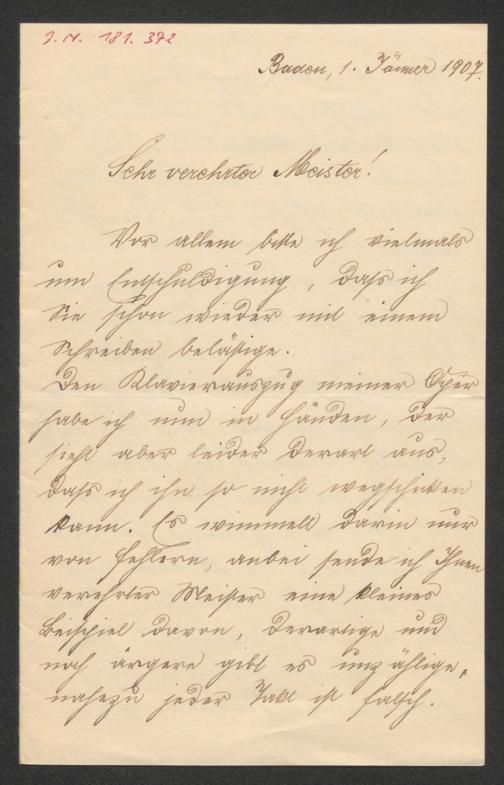 J. N. 181.372
Baden, 1. Jänner 1907.
Sehr verehrter Meister!
Vor allem bitte ich vielmals
um Entschuldigung, dass ich
Sie schon wieder mit einem
Schreiben belästige.
Den Klavierauszug meiner Oper
habe ich nun in Händen, der
sieht aber leider derart aus,
dass ich ihn so nicht wegschicken
kann. Es wimmelt darin nur
von Fehlern, anbei sende ich Ihnen
verehrter Meister eine kleines
Beispiel davon, derartige und
noch ärgere gibt es unzählige,
nahezu jeder Takt ist falsch.